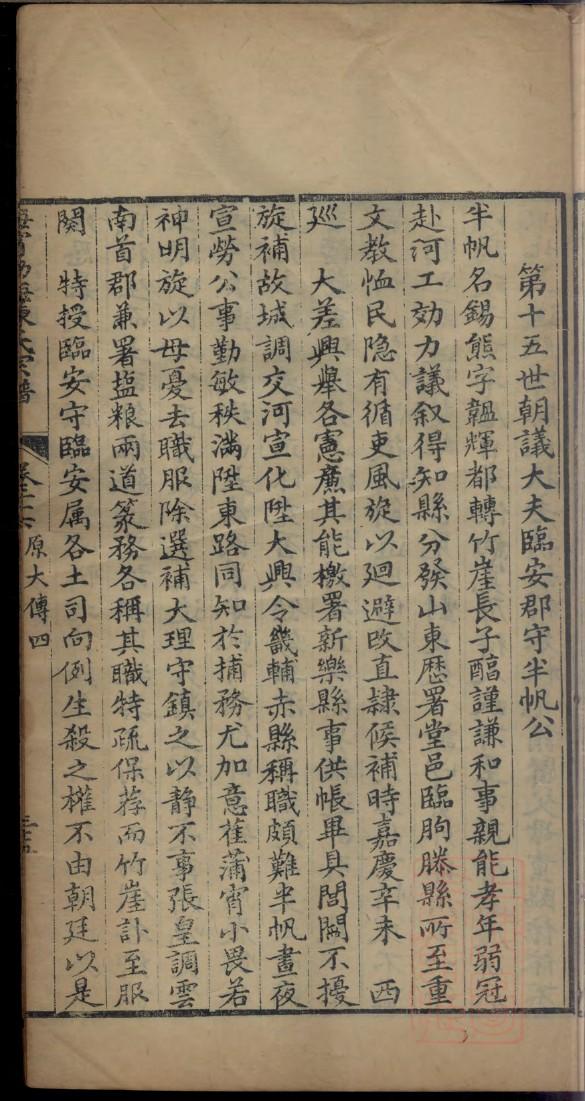 第十五世朝議大夫臨安郡守半帆公
半帆名錫熊字韞輝都轉竹崖長子醕謹謙和事親能孝年弱冠
赴河工効力議叙得知縣分發山東歷署堂邑臨朐滕縣所至重
文教恤民隐有循吏風旋以廻避改直隷候補時嘉慶辛未　西
巡　大差興舉各憲廉其能檄署新樂縣事供帳畢具閭閻不擾
旋補故城調交河宣化陞大興令畿輔赤縣稱職頗難半帆晝夜
宣勞公事勤敏秩滿陞東路同知於捕務尤加意萑蒲宵小畏若
神明旋以母憂去職服除選補大理守鎮之以静不事張皇調雲
南首郡兼署塩粮兩道篆務各稱其職特疏保荐而竹崖訃至服
闋　特授臨安守臨安属各土司向例生殺之權不由朝廷以是
原大傳四